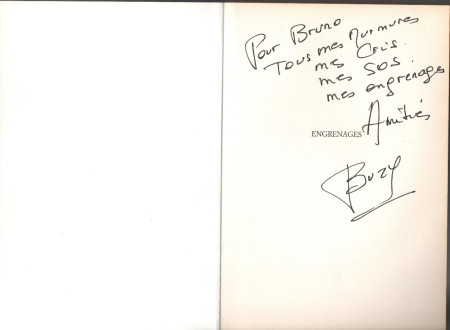 Pour Bruno
Tous mes Murmures
mes Cris.
mes SOS.
mes engrenages
Amitiés
ENGRENAGES
Buzy